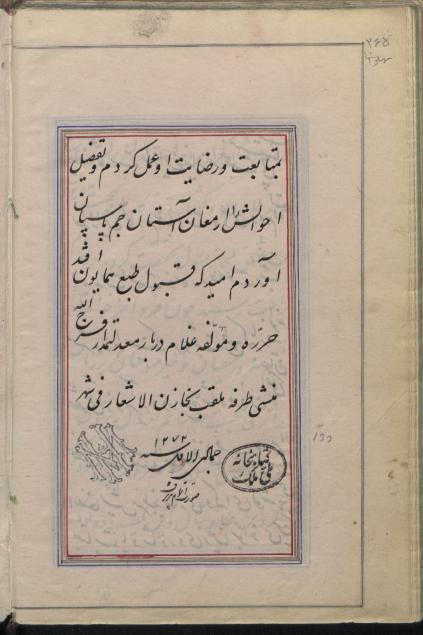 بمتابعت و رضایت او عمل کردم و تفضیل
احوالش را ارمغان آستان جم پاسبان
آوردم امید که قبول طبع همایون افتد
حرّره و مؤلّفه غلام دربار معدلتمدار فرج الله
منشی طرفه ملقب بخازن الاشعار فی شهر
جمادی الاول سنه ۱۲۷۲
کتابخانه
ملی ملک